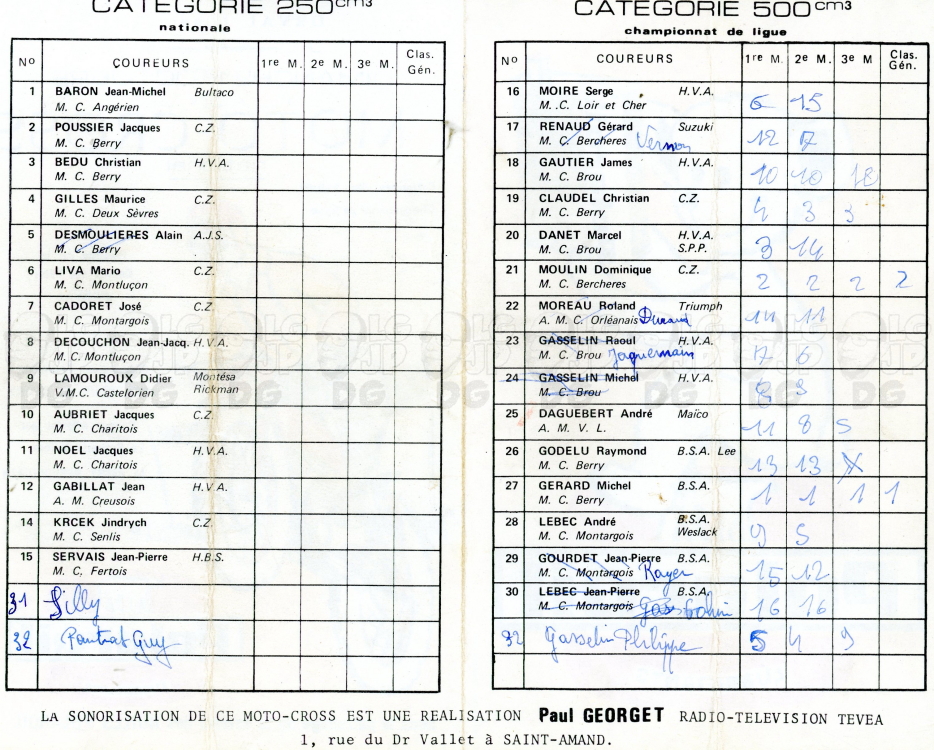 CATEGORIE 250cm3
nationale
No COUREURS 1re M. 2e M. 3e M. Clas. Gén.
1 BARON Jean-Michel Bultaco
M. C. Angérien
2 POUSSIER Jacques C.Z.
M. C. Berry
3 BEDU Christian H.V.A.
M. C. Berry
4 GILLES Maurice C.Z.
M. C. Deux Sèvres
5 DESMOULIERES Alain A.J.S.
M. C. Berry
6 LIVA Mario C.Z.
M. C. Montluçon
7 CADORET José C.Z.
M. C. Montargois
8 DECOUCHON Jean-Jacq. H.V.A.
M. C. Montluçon
9 LAMOUROUX Didier Montésa
V.M.C. Castelorien Rickman
10 AUBRIET Jacques C.Z.
M. C. Charitois
11 NOEL Jacques H.V.A.
M. C. Charitois
12 GABILLAT Jean H.V.A.
A. M. Creusois
14 KRCEK Jindrych C.Z.
M. C. Senlis
15 SERVAIS Jean-Pierre H.B.S.
M. C. Fertois
31 Silly
32 Guy
CATEGORIE 500cm3
championnat de ligue
No COUREURS 1re M. 2e M. 3e M Clas. Gén.
16 MOIRE Serge H.V.A.
M. .C. Loir et Cher 6 15
17 RENAUD Gérard Suzuki
M. C. Bercheres Vernon 12 7
18 GAUTIER James H.V.A.
M. C. Brou 10 10
19 CLAUDEL Christian C.Z.
M. C. Berry 4 3 3
20 DANET Marcel H.V.A.
M. C. Brou S.P.P. 3 14
21 MOULIN Dominique C.Z.
M. C. Bercheres 2 2 2 2
22 MOREAU Roland Triumph
A. M. C. Orléanais Durand 14 11
23 GASSELIN Raoul H.V.A.
M. C. Brou Jaquemain 7 6
24 GASSELIN Michel H.V.A.
M. C. Brou 8 9
25 DAGUEBERT André Maïco
A. M. V. L. 11 8 5
26 GODELU Raymond B.S.A. Lee
M. C. Berry 13 13
27 GERARD Michel B.S.A.
M. C. Berry 1 1 1 1
28 LEBEC André B.S.A.
M. C. Montargois Weslack 9 5
29 GOURDET Jean-Pierre B.S.A.
M. C. Montargois Kayer 15 12
30 LEBEC Jean-Pierre B.S.A.
M. C. Montargois 16 16
32 Gasselin Philippe 5 4 9
LA SONORISATION DE CE MOTO-CROSS EST UNE REALISATION Paul GEORGET RADIO-TELEVISION TEVEA
1, rue du Dr Vallet à SAINT-AMAND.